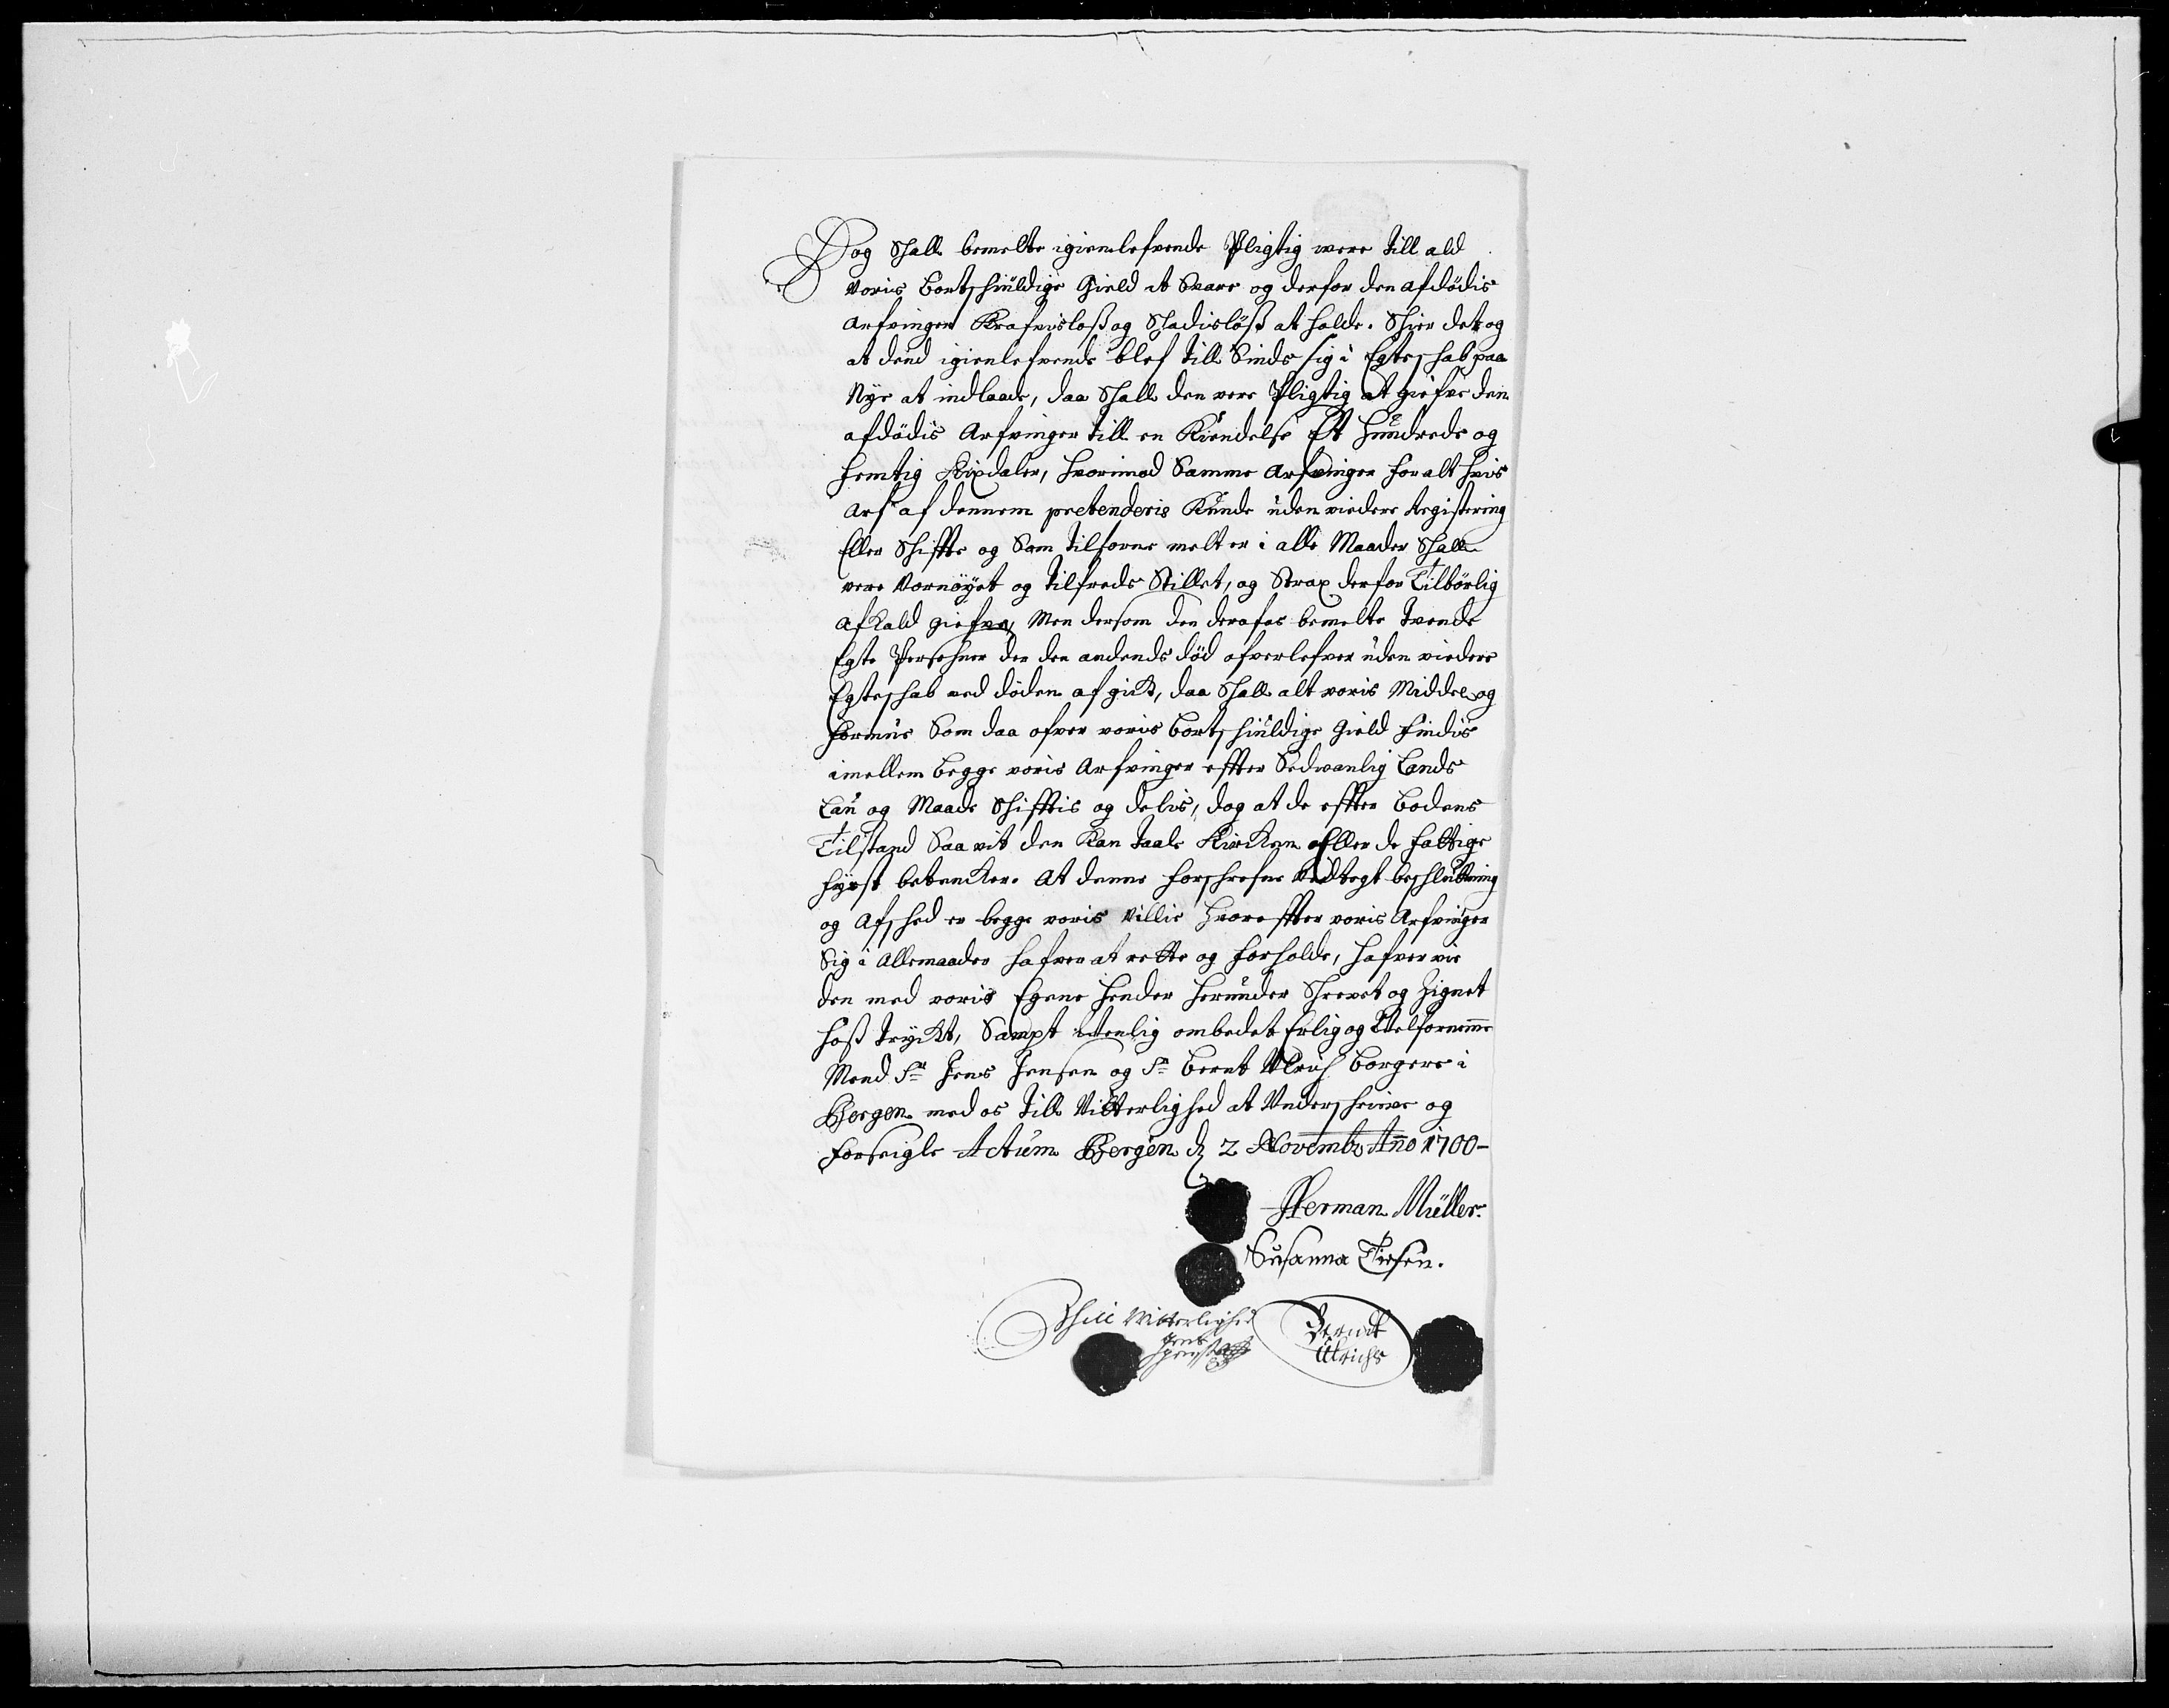 Dog Skall bemelte igienlefvende Pligtig were till ald
voris bortskyldige Gield at Svare og derfor den afdödis
Arfvinger Krafvislosß og Skadislösß at holde. Skier det og
at dend igienlefvende blef till Sinds sig i Egteskab paa
Nye at indlaade, daa Skall den vere Pligtig at giefve den
afdödis Arfvinger till en Kiendelse Et Hundrede og
femtig Rixdaler, hvorimod Samme Arfvinger for alt hvis
Arf af dennem pretenderis Kunde uden viedere Registering
Eller Skiffte og Som tilforne melt er i alle Maader Skall
vere Vornöyet og tilfreds Stillet, og Strax derfor Tilbörlig
afkald giefve, Men dersom den deraf os bemelte Tvende
Egte Persohner der den andends död ofverlefver uden viedere
Egteskab ved döden afgick, daa Skall alt voris Middel og
formue Som daa ofver voris bortskyldige Gield findis
imellem begge voris Arfvinger effter Sedvanlig Lands
Lau og Maade Skifftis og delis, dog at de effter Bodens
Tilstand Saa vit den Kan taale Kircken Eller de fattige
fyrst betencker. At denne forskrefne Vedtegt beslutning
og Afskeed er begge voris villie hvoreffter voris Arfvinger
Sig i Allemaader hafver at rette og forholde, hafver vie
den med voris Egene hender herunder Skrevet og Zignet
hosß tryckt, Sampt Venlig ombedet Erlig og Velfornemme
Mend Sr Jens Jensen og Sr Bernt Ulrich borgere i
Bergen med os till Vitterlighed at Underskrive og
forseigle Actum Bergen d 2 Novembr Ano 1700 -
Herman Müller.
Susanna Tiesen.
Thill Vitterlighed
Jens
Jensen
Berent
Ulrichs